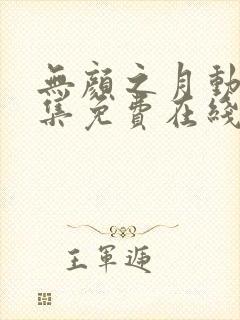 無顏之月動
集免費在綫
王軍遞